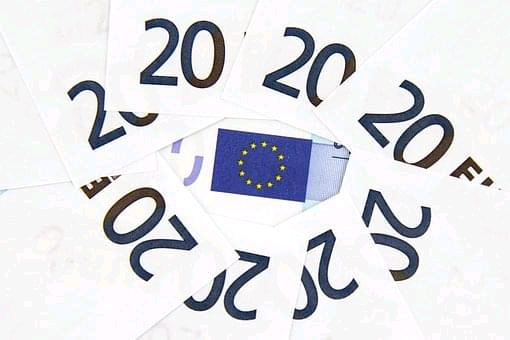 20
20
20
20 EU
20
20
20
20